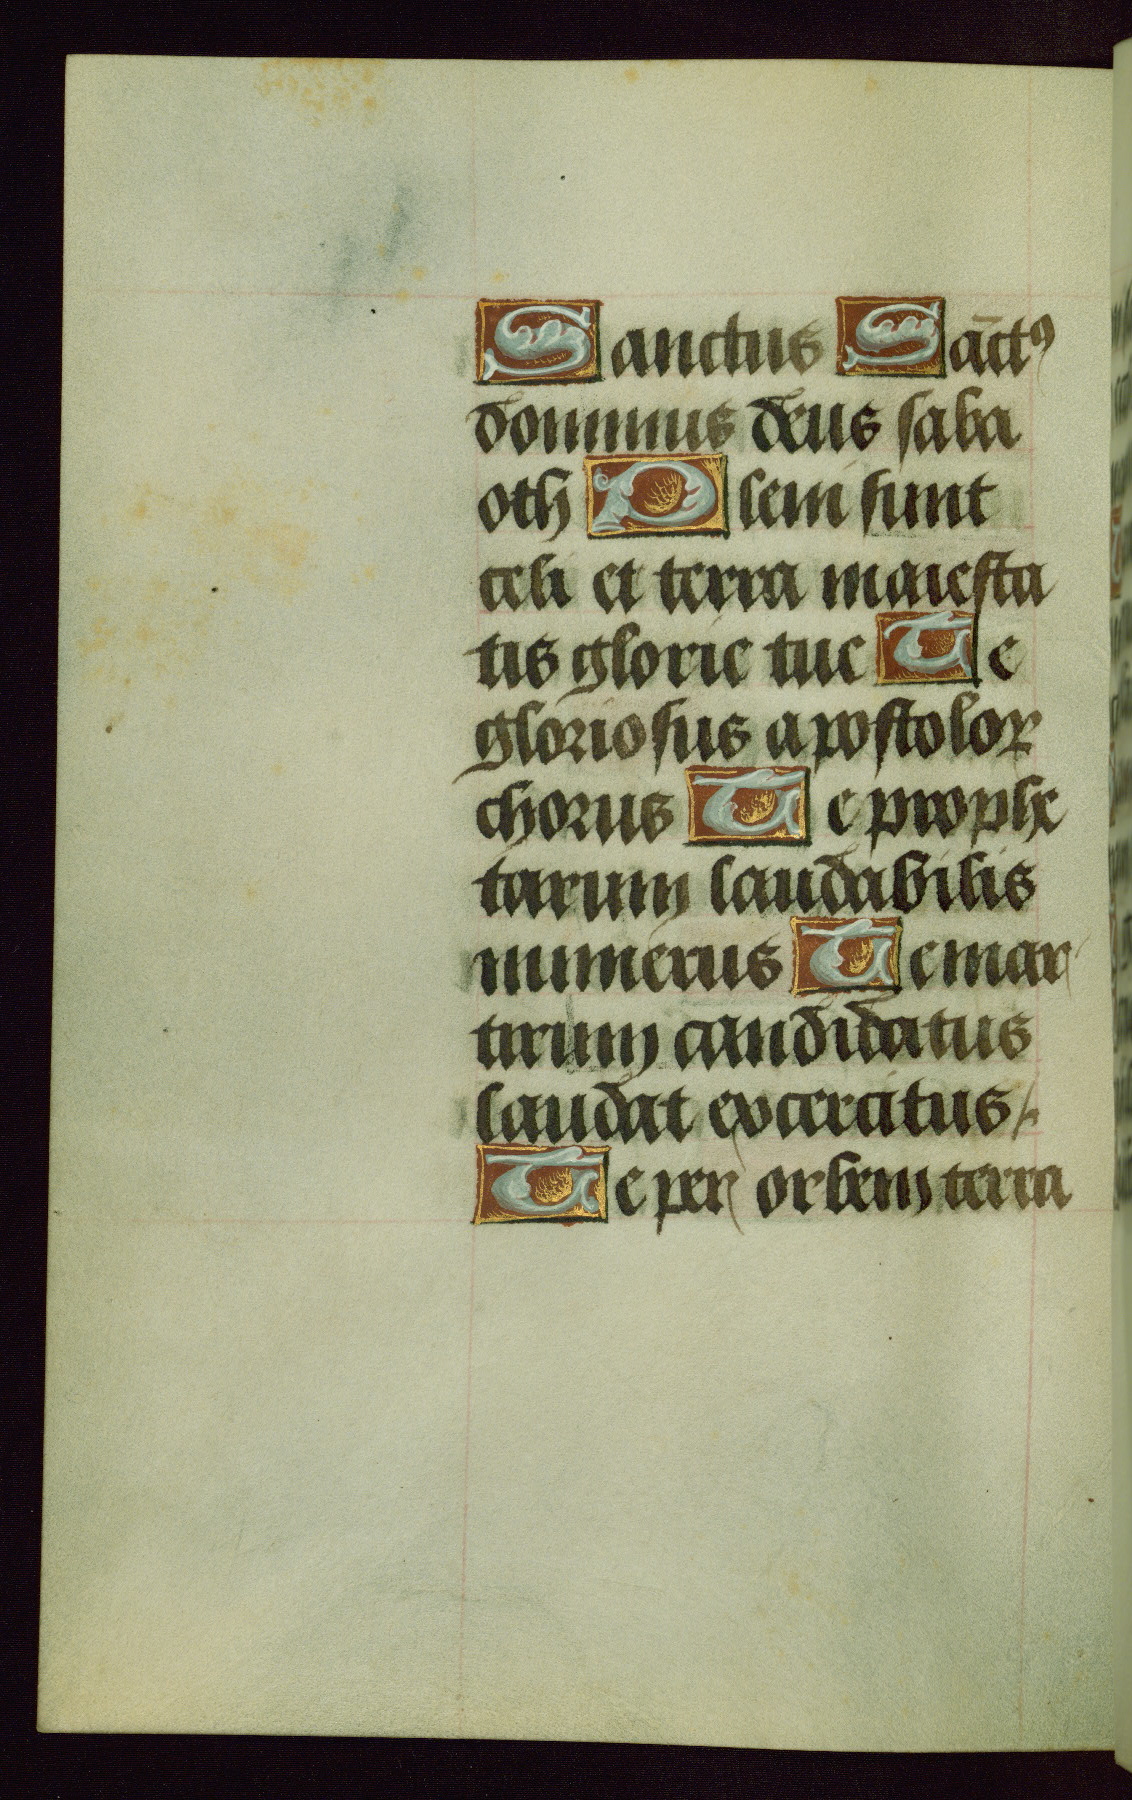 Sanctus Sāctꝰ
dominus deus saba
oth Pleni sunt
celi et terra maiesta
tis glorie tue Te
gloriosus apostoloꝝ
chorus Te prophe
tarum laudabilis
numerus Te mar
tirum candidatus
laudat excercitus
Te per orbem terra